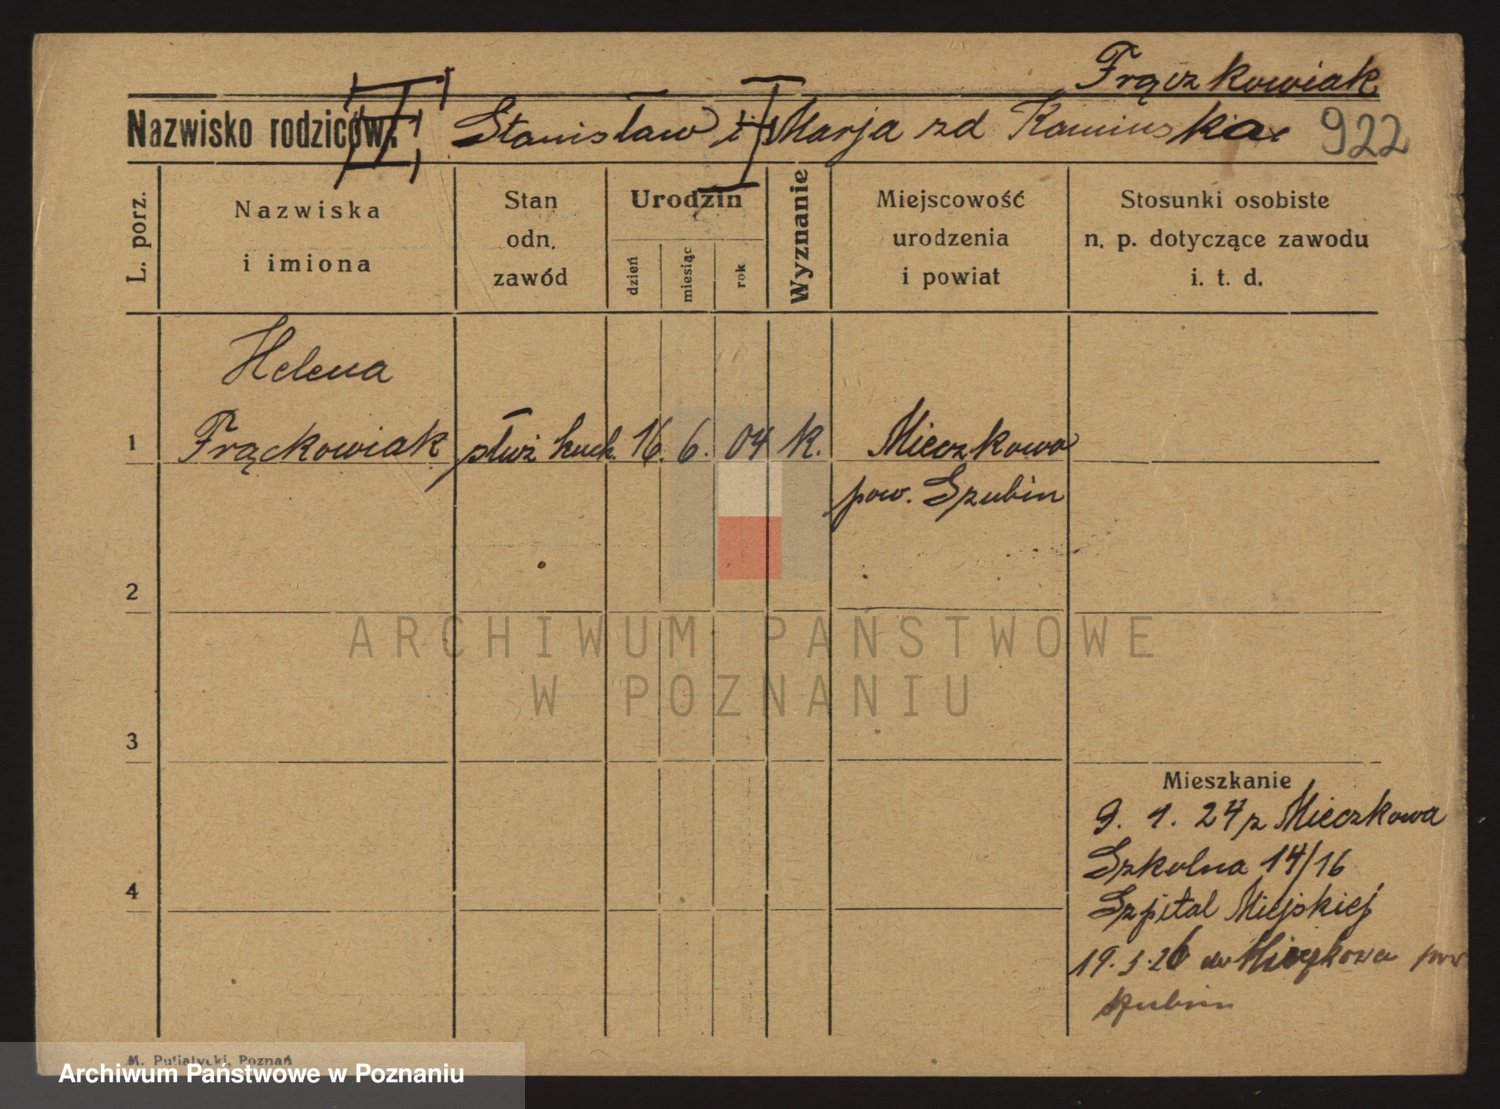 Frączkowiak
Nazwisko rodziców: Stanisław i Marja zd Kamińska 922
L. porz.
Nazwiska
i imiona
Stan
odn.
zawód
Urodzin
dzień
miesiąc
rok
Wyznanie
Miejscowość
urodzenia
i powiat
Stosunki osobiste
n. p. dotyczące zawodu
i. t. d.
Helena
1 Frąckowiak służ kuch. 16. 6. 04 k. Mieczkowo
pow. Szubin
2
ARCHIWUM PAŃSTWOWE
W POZNANIU
3
Mieszkanie
9. 1. 24 z Mieczkowa
Szkolna 14/16
4
Szpital Miejskiej
19.3.26 do Mieczkowa pow
Szubin
M. Putiatycki, Poznań
Archiwum Państwowe w Poznaniu